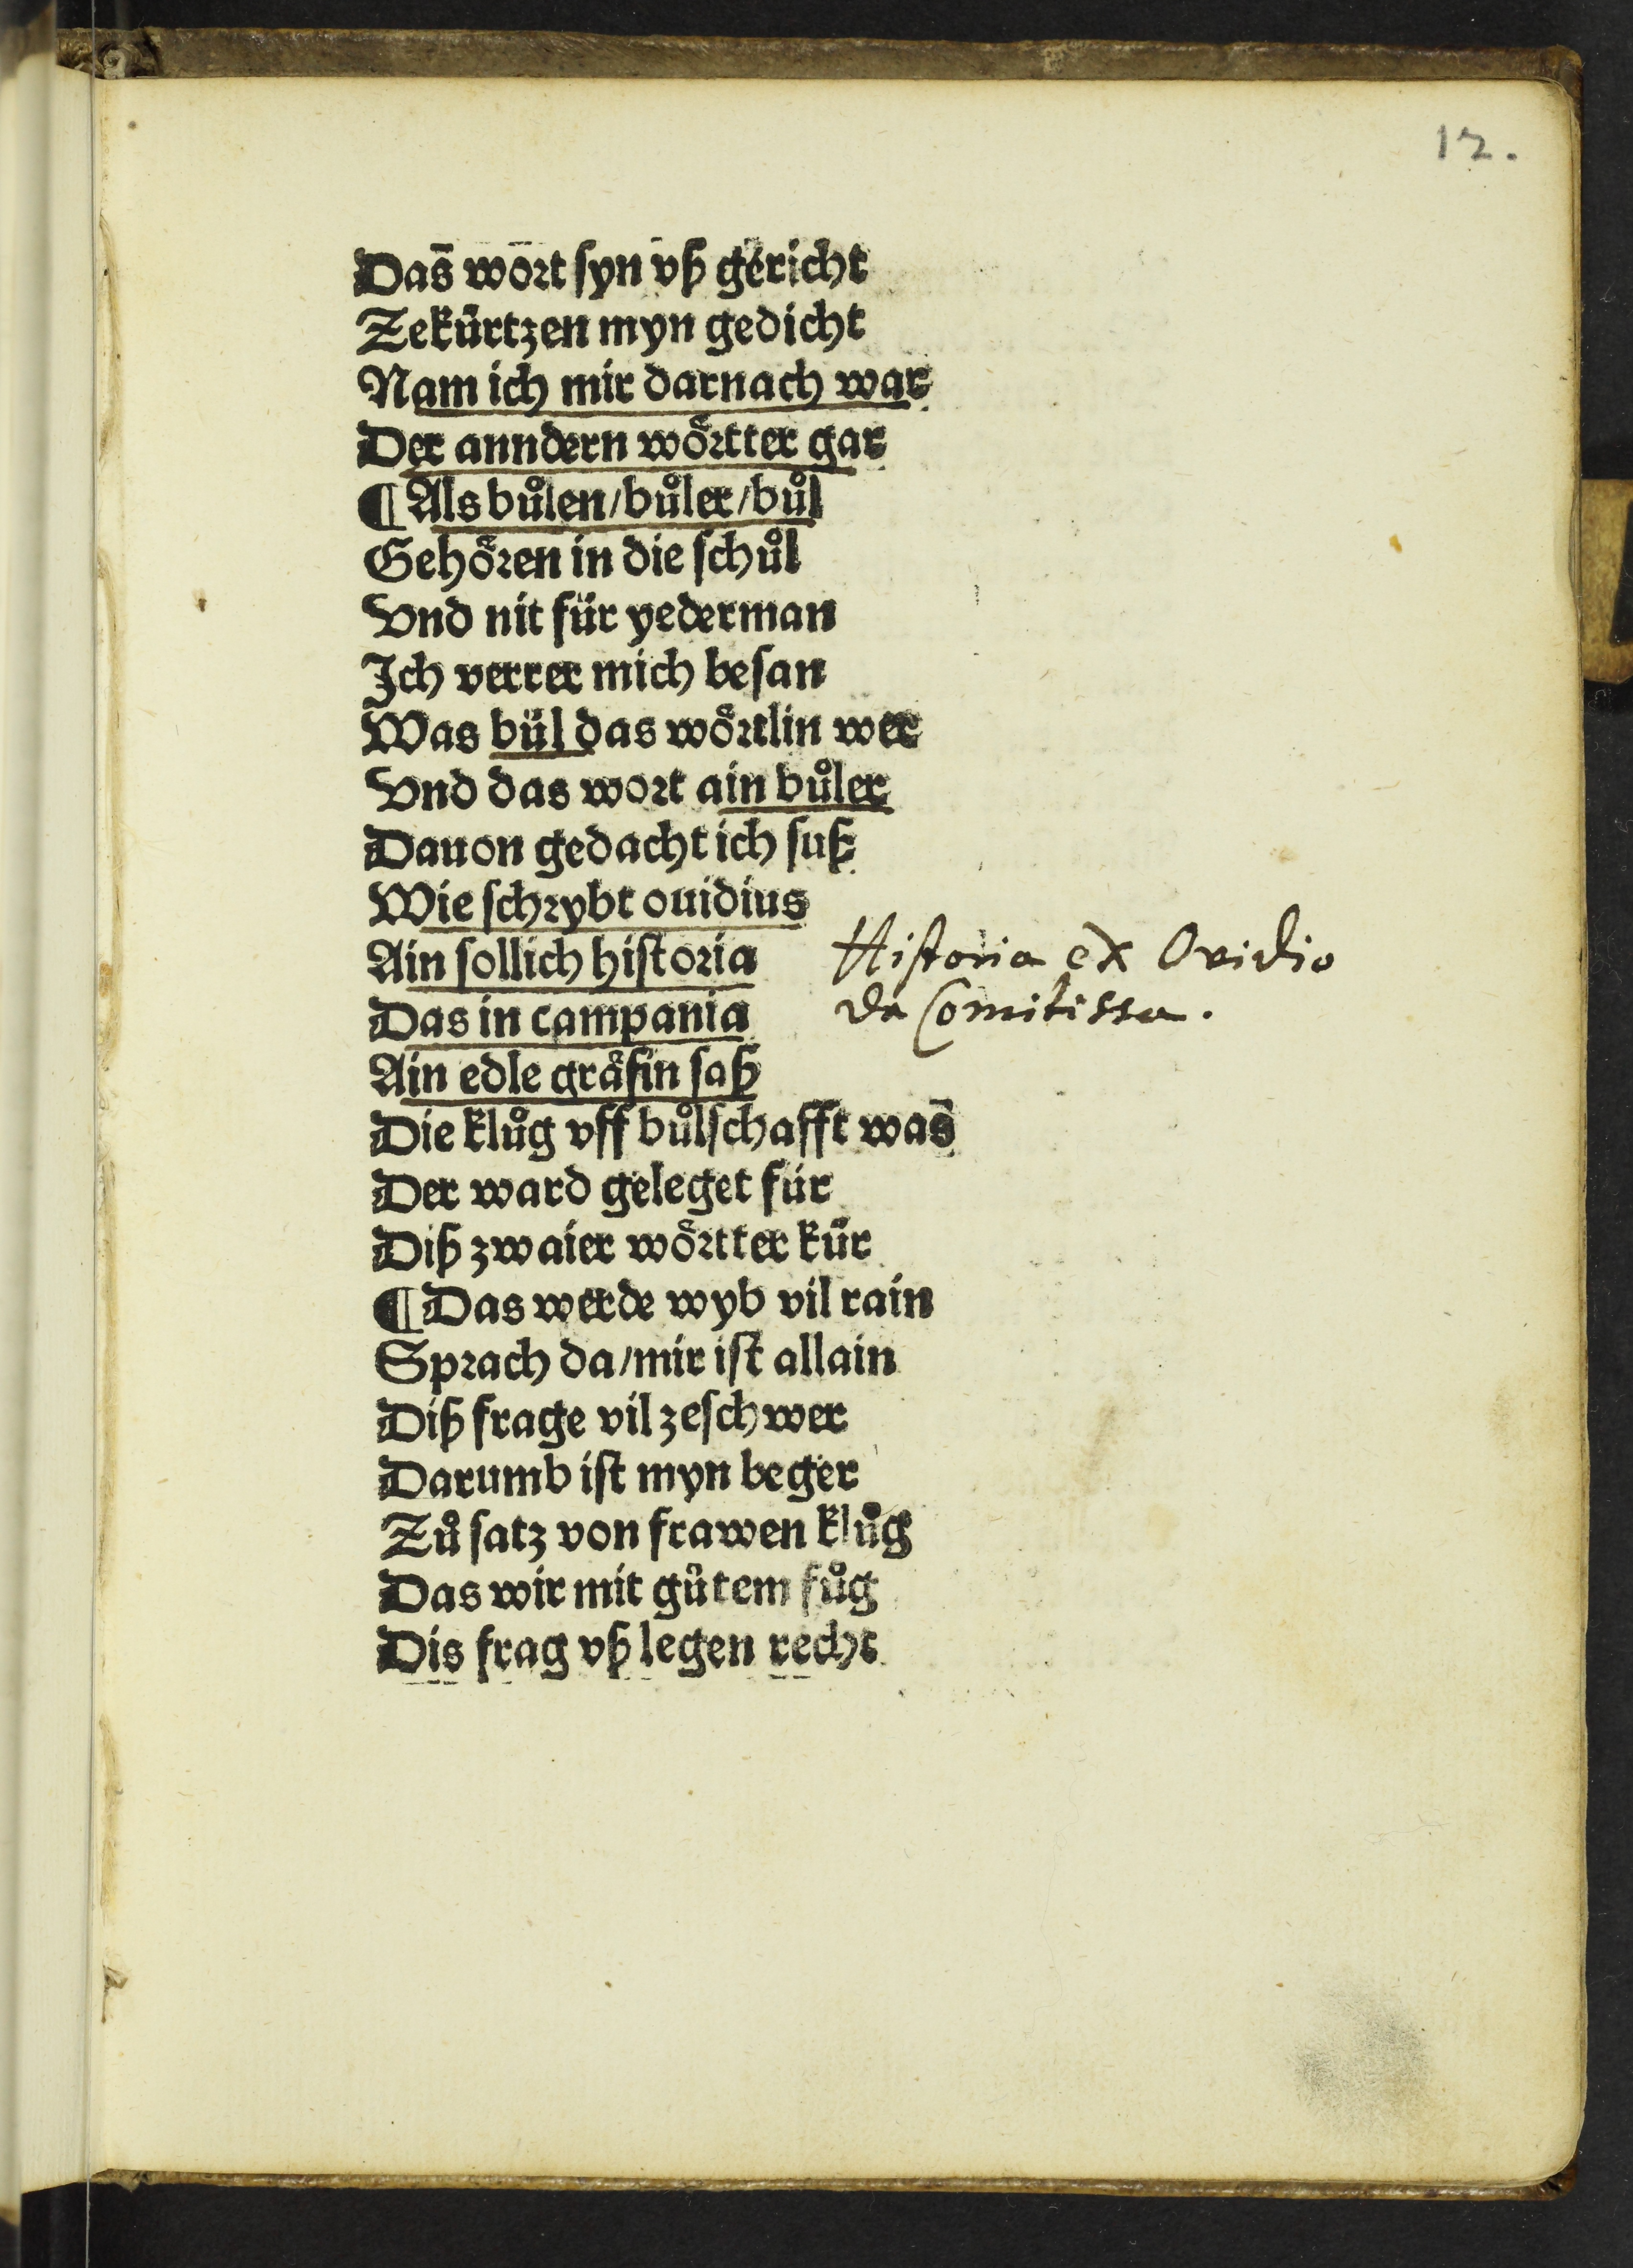 12.
Das wort syn vß gericht
Zekürtzen myn gedicht
Nam ich mir darnach war
Der anndern wörtter gar
¶ Als bůlen/bůler/bůl
Gehören in die schůl
Vnd nit für yederman
Ich verrer mich besan
Was bül das wörtlin wer
Vnd das wort ain bůler
Dauon gedacht ich suß
Wie schrybt ouidius
Ain sollich historia
Das in campania
Ain edle gräfin saß
Die klůg vff bůlschafft was
Der ward geleget für
Diß zwaier wörtter kür
¶ Das werde wyb vil rain
Sprach da/mir ist allain
Diß frage vil zeschwer
Darumb ist myn beger
Zů satz von frawen klůg
Das wir mit gůtem fůg
Dis frag vß legen recht
Historia ex Ovidio
de Comitissa.